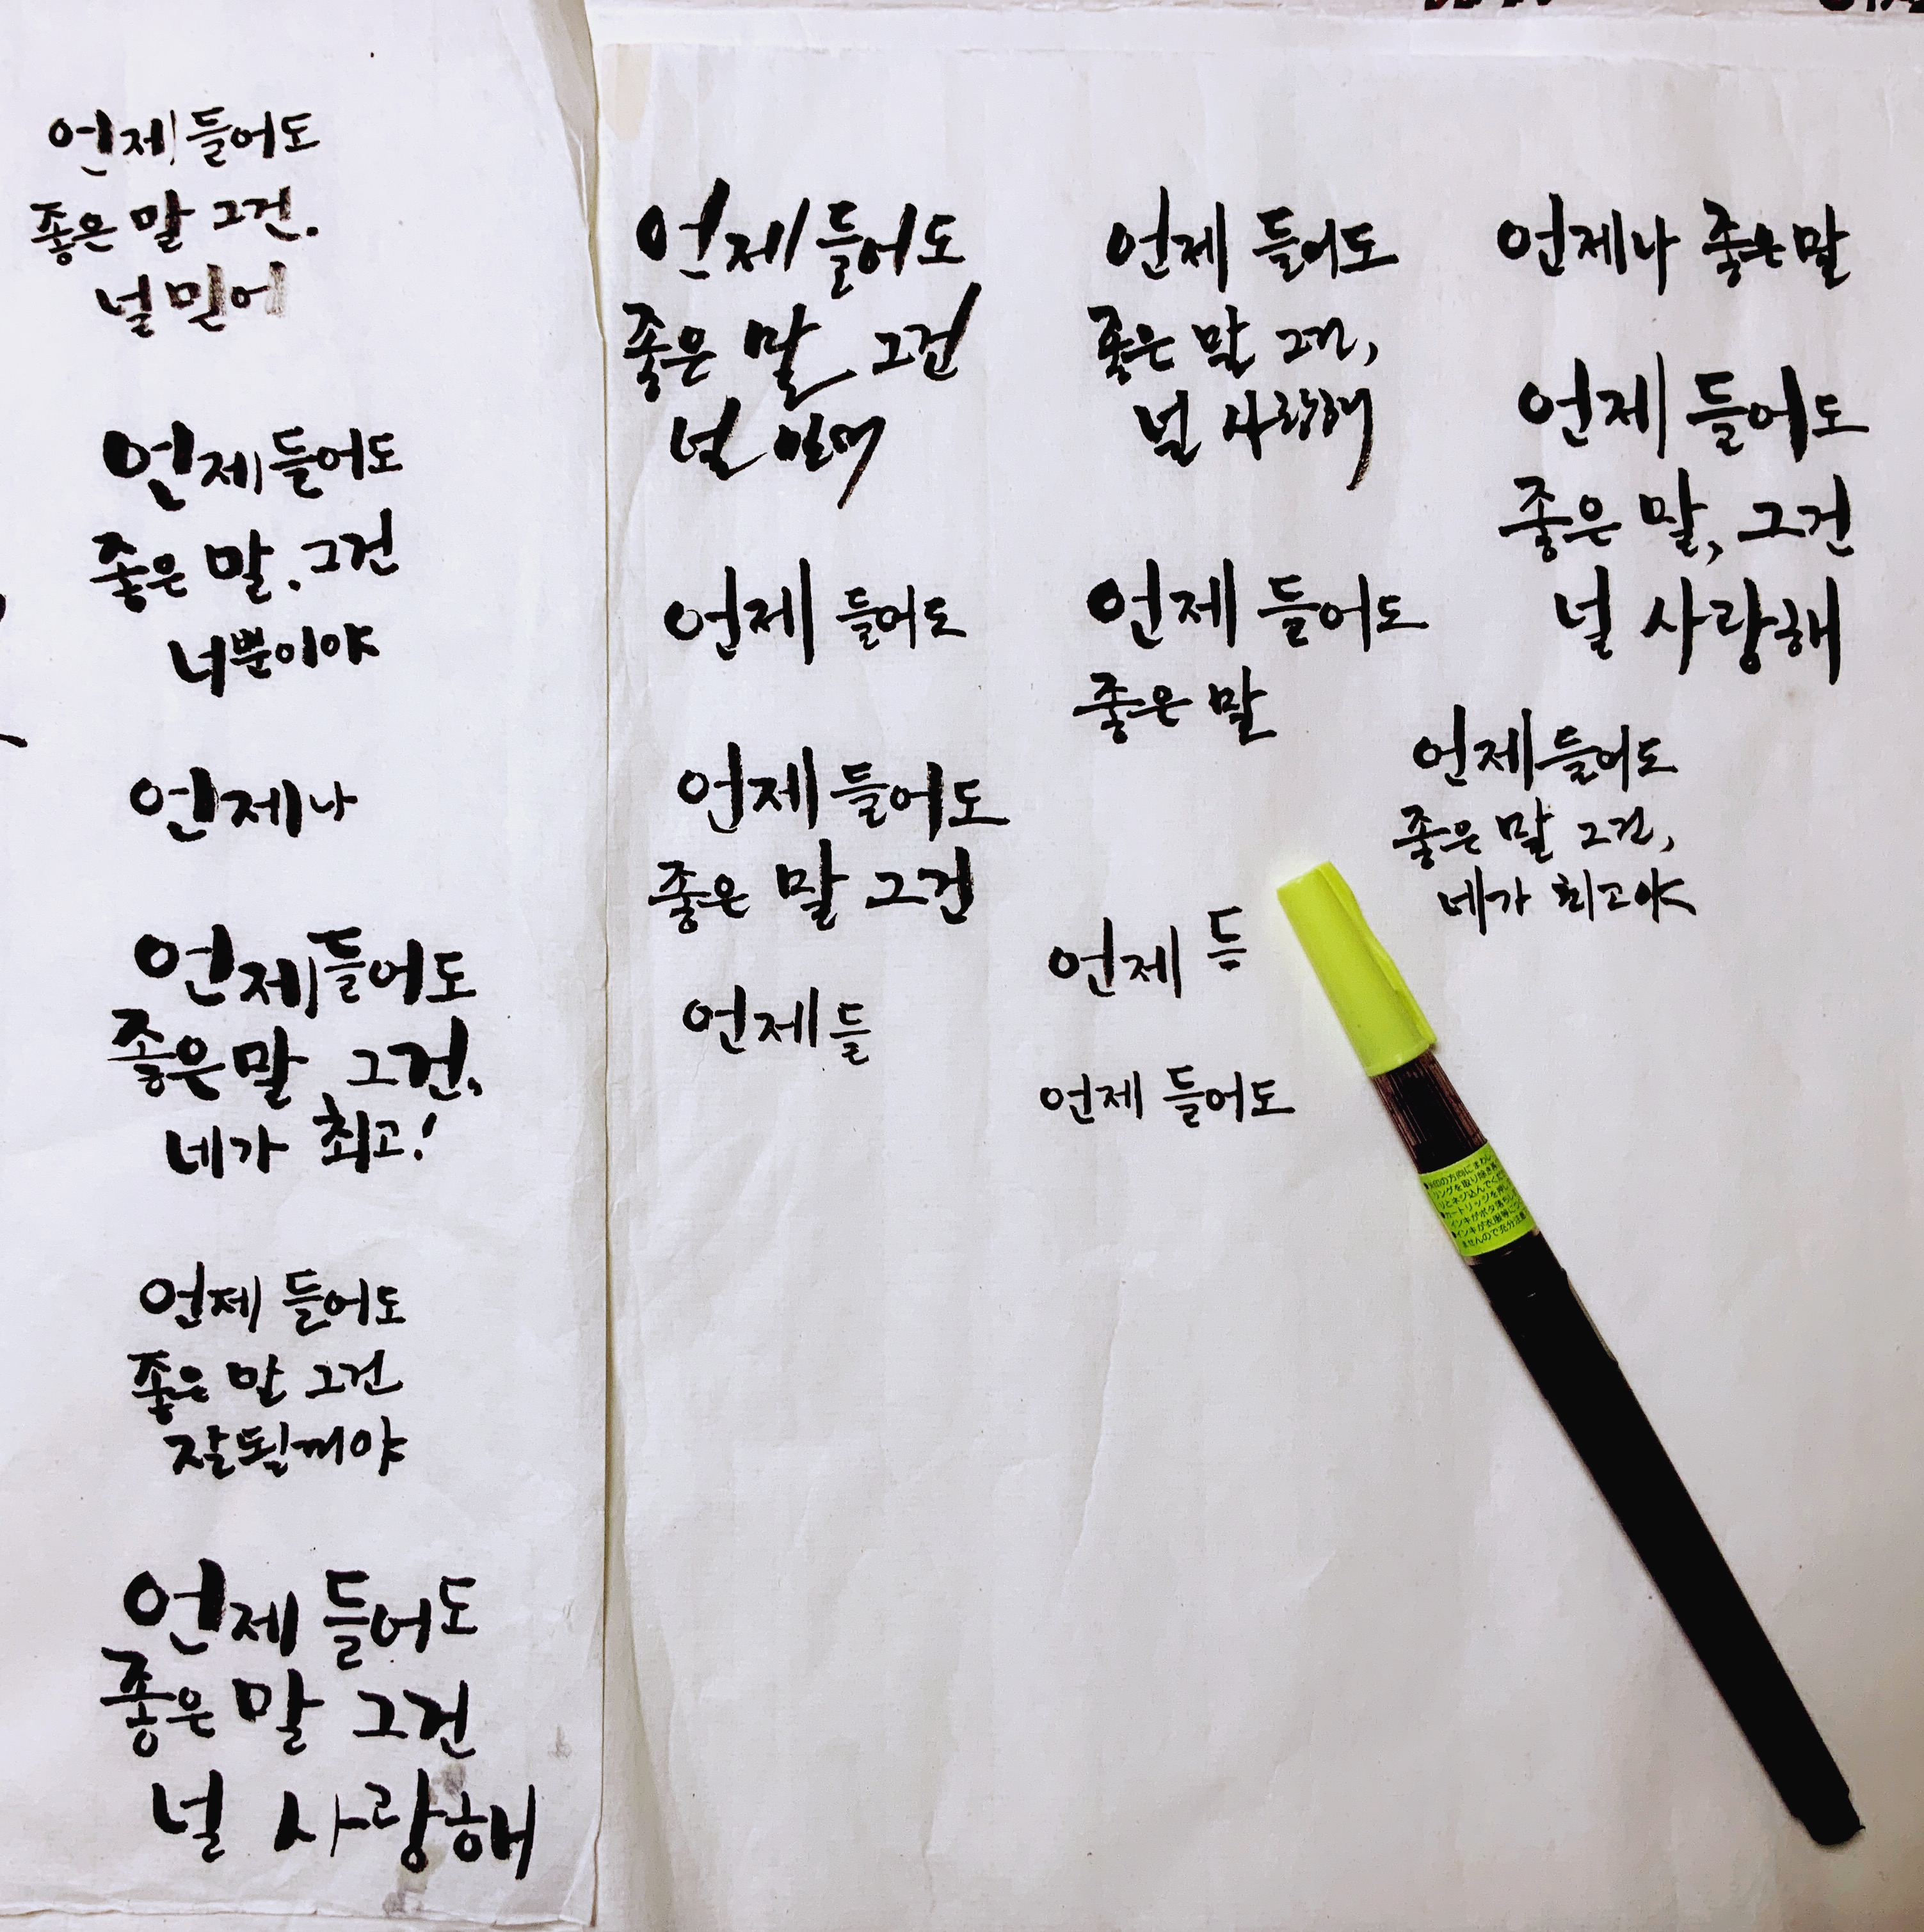 언제 들어도
좋은 말 그건.
널 믿어
언제 들어도
좋은 말. 그건
너뿐이야
언제나
언제 들어도
좋은 말 그건,
네가 최고!
언제 들어도
좋은 말 그건
잘될꺼야
언제 들어도
좋은 말 그건
널 사랑해
언제 들어도
좋은 말 그건
널
언제 들어도
언제 들어도
좋은 말 그건
언제 들
언제 들어도
좋은 말 그건,
널 사랑해
언제 들어도
좋은 말
언제 드
언제 들어도
언제나 좋은 말
언제 들어도
좋은 말, 그건
널 사랑해
언제 들어도
좋은 말 그건,
네가 최고야